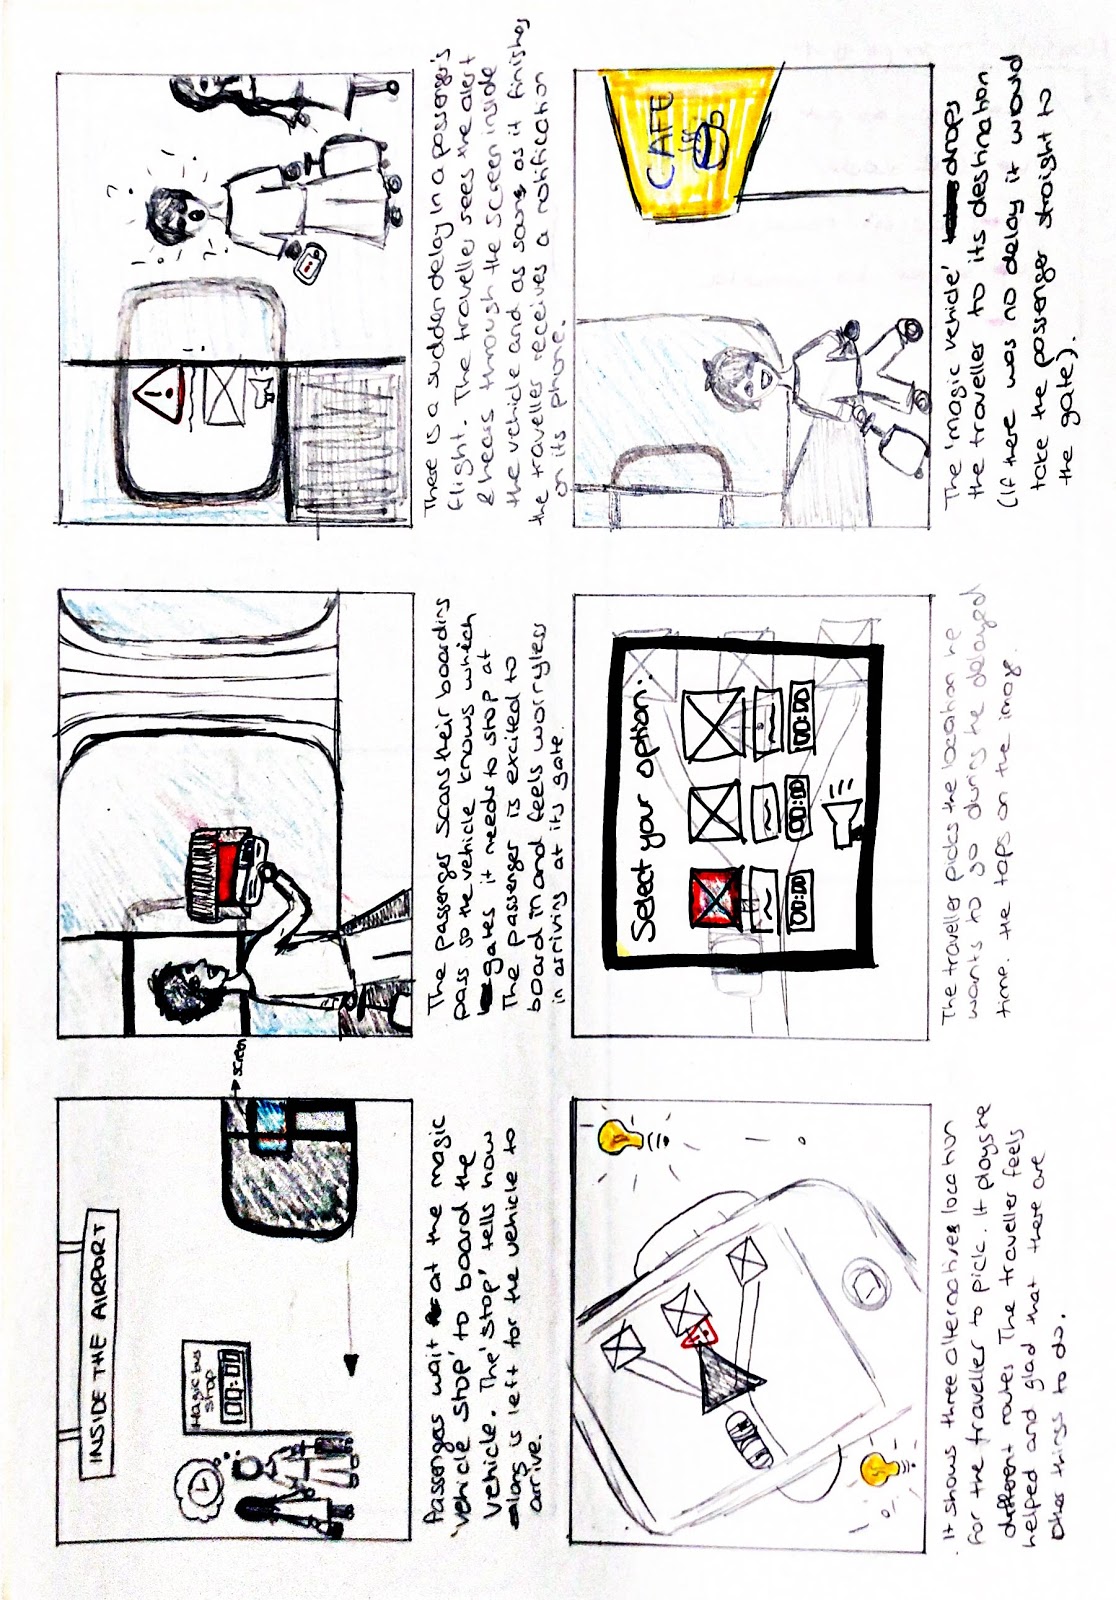 INSIDE THE AIRPORT
Magic bus
stop
00:00
screen
Passengers wait at the magic
'vehicle stop' to board the
vehicle. The 'stop' tells how
long is left for the vehicle to
arrive.
The passenger scans their boarding
pass so the vehicle knows which
gates it needs to stop at.
The passenger is excited to
board in and feels worryless
in arriving at its gate.
! ! ? ? ! ? !
There is a sudden delay in a passenger's
flight. The traveller sees the alert
& hears through the screen inside
the vehicle and as soon as it finishes
the traveller receives a notification
on its phone.
!
It shows three alternatives location
for the traveller to pick. It plays the
different routes The traveller feels
helped and glad that there are
other things to do.
Select your option:
00:00 00:00 00:00
The traveller picks the location he
wants to go during he delayed
time. He taps on the image.
CAFE
The 'magic vehicle' drops
the traveller to its destination.
(If there was no delay it would
take the passenger straight to
the gate).